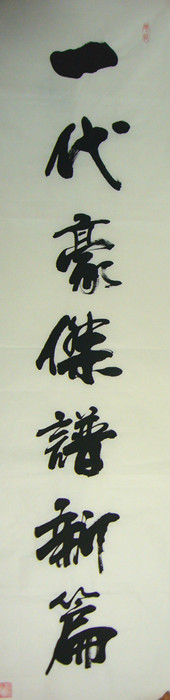 一代豪傑譜新篇